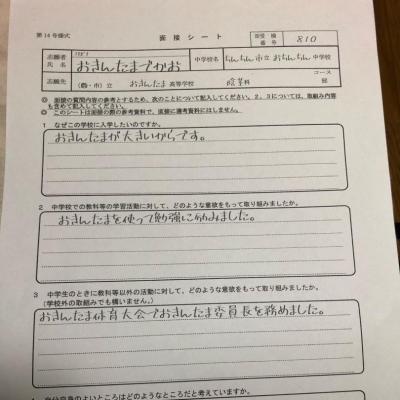 第14号様式
面接シート
受検番号 810
フリガナ
志願者氏名 おきんたまでかお
中学校名 ちんちん市立おちんちん中学校
志願先 (県・市)立 おきんたま高等学校 陰茎科
コース
部
◎ 面接の質問内容の参考とするため、次のことについて記入してください。2、3については、取組み内容
も含めて記入してください。
◎ このシートは面接の際の参考資料で、直接に選考資料にはしません。
1 なぜこの学校に入学したいのですか。
おきんたまが大きいからです。
2 中学校での教科等の学習活動に対して、どのような意欲をもって取り組みましたか。
おきんたまを使って勉強に励みました。
3 中学生のときに教科等以外の活動に対して、どのような意欲をもって取り組みましたか。
(学校外の取組みでも構いません。)
おきんたま体育大会でおきんたま委員長を務めました。
自分自身のよいところはどのようなところだと考えていますか。